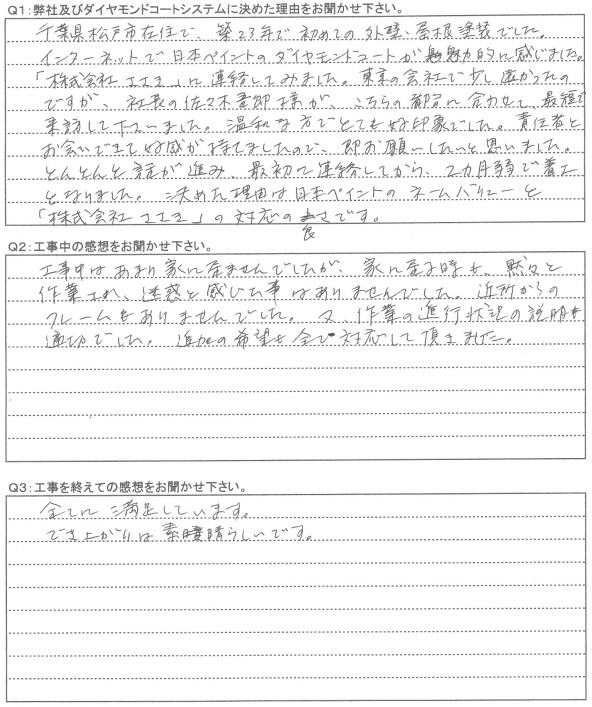 Q1:弊社及びダイヤモンドコートシステムに決めた理由をお聞かせ下さい。
千葉県松戸市在住で、築23年で初めての外壁、屋根塗装でした。
インターネットで日本ペイントのダイヤモンドコートが魅力的に感じました。
「株式会社ささき」に連絡してみました。東京の会社で少し遠かったの
ですが、社長の佐々木 様が、こちらの都合に合わせて、最短で
来訪して下さいました。温和な方でとても好印象でした。責任者と
お会いできて好感が持てましたので、即お願いしたいと思いました。
とんとんと話が進み、最初に連絡してから、2カ月弱で着工
となりました。決めた理由は日本ペイントのネームバリューと
「株式会社ささき」の対応の良さです。
Q2:工事中の感想をお聞かせ下さい。
工事中はあまり家に居ませんでしたが、家に居る時も、黙々と
作業され、迷惑と感じた事はありませんでした。近所からの
クレームもありませんでした。又、作業の進行状況の説明も
適切でした。追加の希望も全て対応して頂きました。
Q3:工事を終えての感想をお聞かせ下さい。
全てに満足しています。
でき上がりは素晴らしいです。